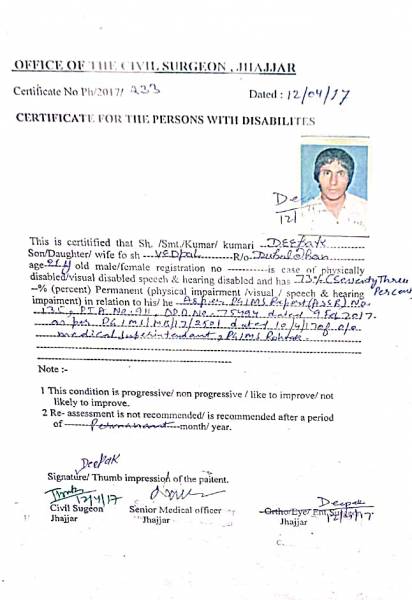 OFFICE OF THE CIVIL SURGEON , JHAJJAR
Certificate No Ph/2017/ 233 Dated : 12/04/17
CERTIFICATE FOR THE PERSONS WITH DISABILITES
De
12/
This is certitified that Sh. /Smt./Kumar/ kumari Deepak
Son/Daughter/ wife fo sh Vedpal R/o
age old male/female registration no is case of physically
disabled/visual disabled speech & hearing disabled and has 73% (Seventy Three
-% (percent) Permanent (physical impairment /visual / speech & hearing Percent
impaiment) in relation to his/he As per PGIMS Report No.
135, No. 911, No. 75494 dated 9 Feb 2017.
as per PGIMS/MB/17/2501 dated 10/4/17 of o/o
medical Superintendant, PGIMS Rohtak
Note :-
1 This condition is progressive/ non progressive / like to improve/ not
likely to improve.
2 Re- assessment is not recommended/ is recommended after a period
of Permanant month/ year.
Deepak
Signature/ Thumb impression of the paitent.
12/4/17
Civil Sugeon Senior Medical officer Ortho/Eye/ Ent, Surgeon
Jhajjar Jhajjar Jhajjar
Deepak
12/04/17.